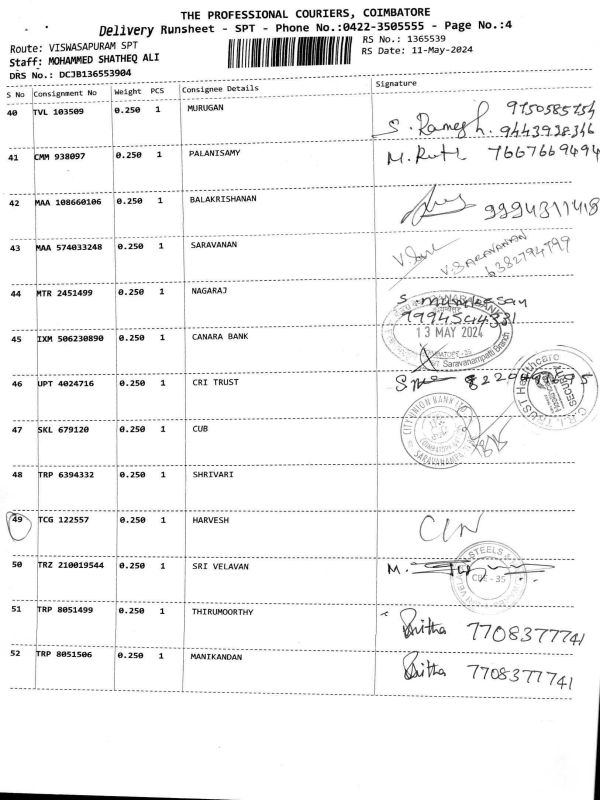 THE PROFESSIONAL COURIERS, COIMBATORE
Delivery Runsheet - SPT - Phone No.:0422-3505555 - Page No.:4
Route: VISWASAPURAM SPT
RS No.: 1365539
Staff: MOHAMMED SHATHEQ ALI
RS Date: 11-May-2024
DRS No.: DCJB136553904
S No Consignment No Weight PCS Consignee Details Signature
40 TVL 103509 0.250 1 MURUGAN
S. Ramesh. 9443928346
41 CMM 938097 0.250 1 PALANISAMY
7667669494
42 MAA 108660106 0.250 1 BALAKRISHANAN
9994311418
43 MAA 574033248 0.250 1 SARAVANAN
V. SARAVANAN
6382794799
44 MTR 2451499 0.250 1 NAGARAJ
S. Murugesan
9994544331
45 IXM 506230890 0.250 1 CANARA BANK
CANARA BANK
13 MAY 2024
Saravanampatti Branch
46 UPT 4024716 0.250 1 CRI TRUST
C.R.I. TRUST Healthcare
SECURITY
47 SKL 679120 0.250 1 CUB
CITY UNION BANK LTD
48 TRP 6394332 0.250 1 SHRIVARI
49 TCG 122557 0.250 1 HARVESH
50 TRZ 210019544 0.250 1 SRI VELAVAN
M.
STEELS &
CBE - 35
51 TRP 8051499 0.250 1 THIRUMOORTHY
7708377741
52 TRP 8051506 0.250 1 MANIKANDAN
7708377741